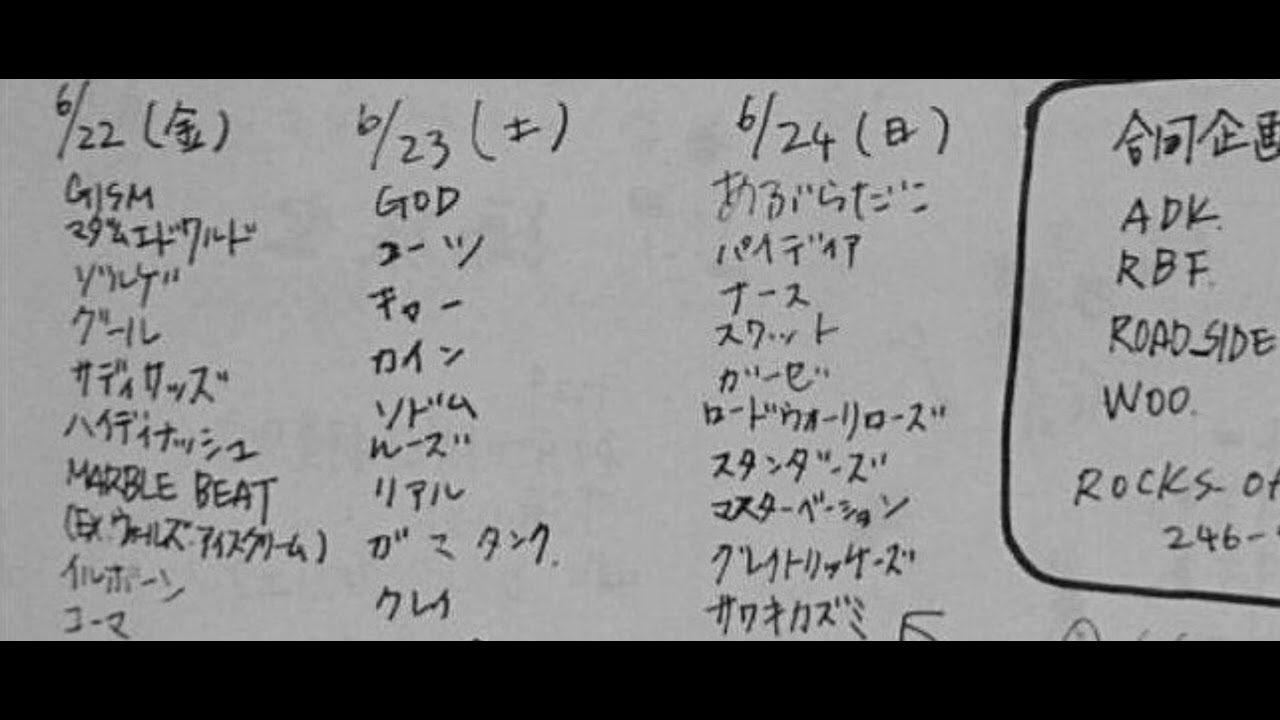 6/22(金)
GISM
マダムエドワルド
ゾルゲ
グール
サディサッズ
ハイディナッシュ
MARBLE BEAT
(EX.ウォールズ・アイスクリーム)
イルボーン
コーマ
6/23(土)
GOD
コーツ
ギロー
カイン
ソドム
ルーズ
リアル
ガミタンク.
クレイ
6/24(日)
あぶらだこ
パイディア
ナース
スワット
ガーゼ
ロードウォーリローズ
スタンダーズ
マスターベーション
グレイトリッチーズ
サワキカズミ
合同企画
ADK.
RBF.
ROAD SIDE
WOO.
ROCKS OF
246-